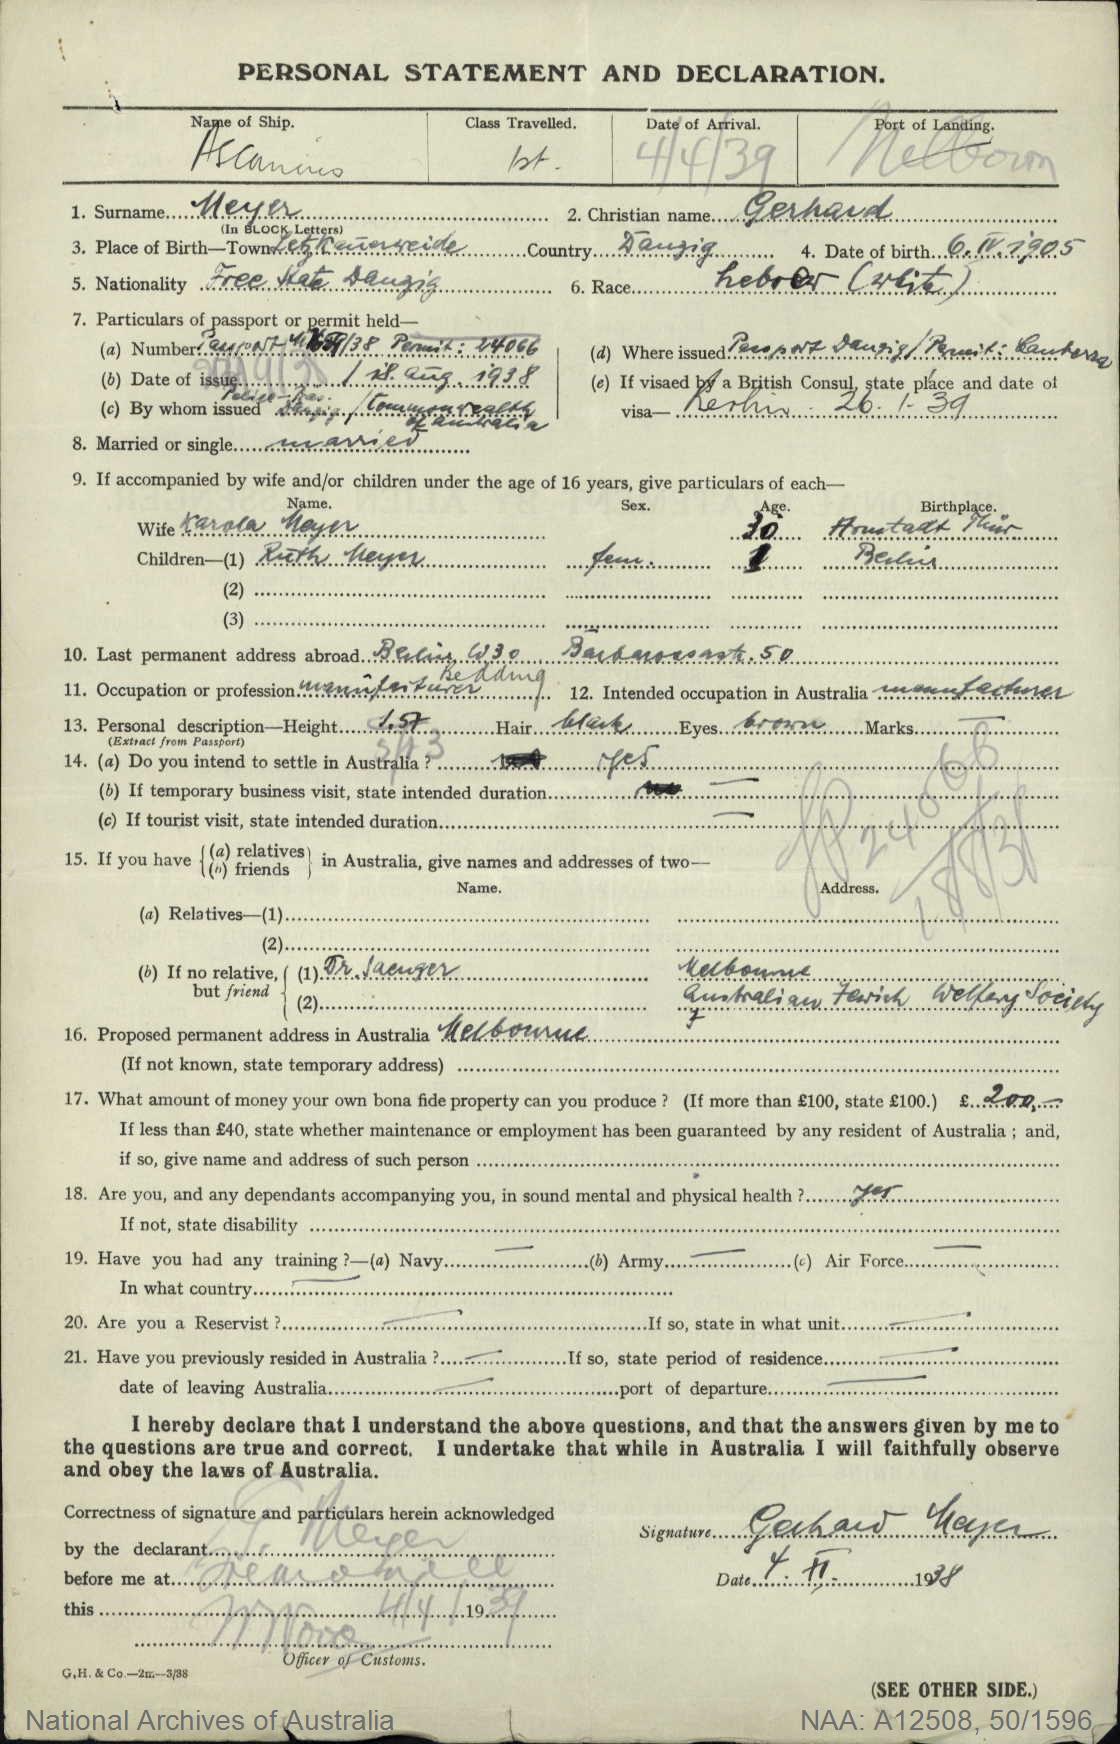 PERSONAL STATEMENT AND DECLARATION.
Name of Ship. Class Travelled. Date of Arrival. Port of Landing.
Ascanius 1st. 4/4/39 Melbourn
1. Surname Meyer 2. Christian name Gerhard
(In BLOCK Letters)
3. Place of Birth—Town Letzkauerweide Country Danzig 4. Date of birth 6. IV. 1905
5. Nationality Free State Danzig 6. Race hebrew (white)
7. Particulars of passport or permit held—
(a) Number Passport /38 Permit: 24066 (d) Where issued Passport Danzig / Permit: Canberra
(b) Date of issue / 18. Aug. 1938 (e) If visaed by a British Consul, state place and date of
(c) By whom issued Danzig / Commonwealth of Australia visa— Berlin 26. 1. 39
8. Married or single married
9. If accompanied by wife and/or children under the age of 16 years, give particulars of each—
Name. Sex. Age. Birthplace.
Wife Karola Meyer 30 Arnstadt Thür.
Children—(1) Ruth Meyer fem. 1 Berlin
(2)
(3)
10. Last permanent address abroad Berlin W30 Barbarossastr. 50
Bedding
11. Occupation or profession manufacturer 12. Intended occupation in Australia manufacturer
13. Personal description—Height 1.57 Hair black Eyes brown Marks —
(Extract from Passport)
14. (a) Do you intend to settle in Australia ? yes
(b) If temporary business visit, state intended duration —
(c) If tourist visit, state intended duration —
LP 24066
18/8/38
15. If you have {(a) relatives (b) friends} in Australia, give names and addresses of two—
Name. Address.
(a) Relatives—(1)
(2)
(b) If no relative, but friend (1) Dr. Saenger Melbourne
(2) Australian Jewish Welfary Society
16. Proposed permanent address in Australia Melbourne
(If not known, state temporary address)
17. What amount of money your own bona fide property can you produce ? (If more than £100, state £100.) £ 200,—
If less than £40, state whether maintenance or employment has been guaranteed by any resident of Australia ; and,
if so, give name and address of such person
18. Are you, and any dependants accompanying you, in sound mental and physical health ? yes
If not, state disability
19. Have you had any training ?—(a) Navy — (b) Army — (c) Air Force —
In what country —
20. Are you a Reservist ? — If so, state in what unit —
21. Have you previously resided in Australia ? — If so, state period of residence —
date of leaving Australia — port of departure —
I hereby declare that I understand the above questions, and that the answers given by me to
the questions are true and correct. I undertake that while in Australia I will faithfully observe
and obey the laws of Australia.
Correctness of signature and particulars herein acknowledged
Signature Gerhard Meyer
by the declarant G. Meyer
before me at Fremantle
Date 4. XI. 1938
this 4/4/ 1939
Officer of Customs.
G.H. & Co.—2m—3/38
(SEE OTHER SIDE.)
National Archives of Australia NAA: A12508, 50/1596